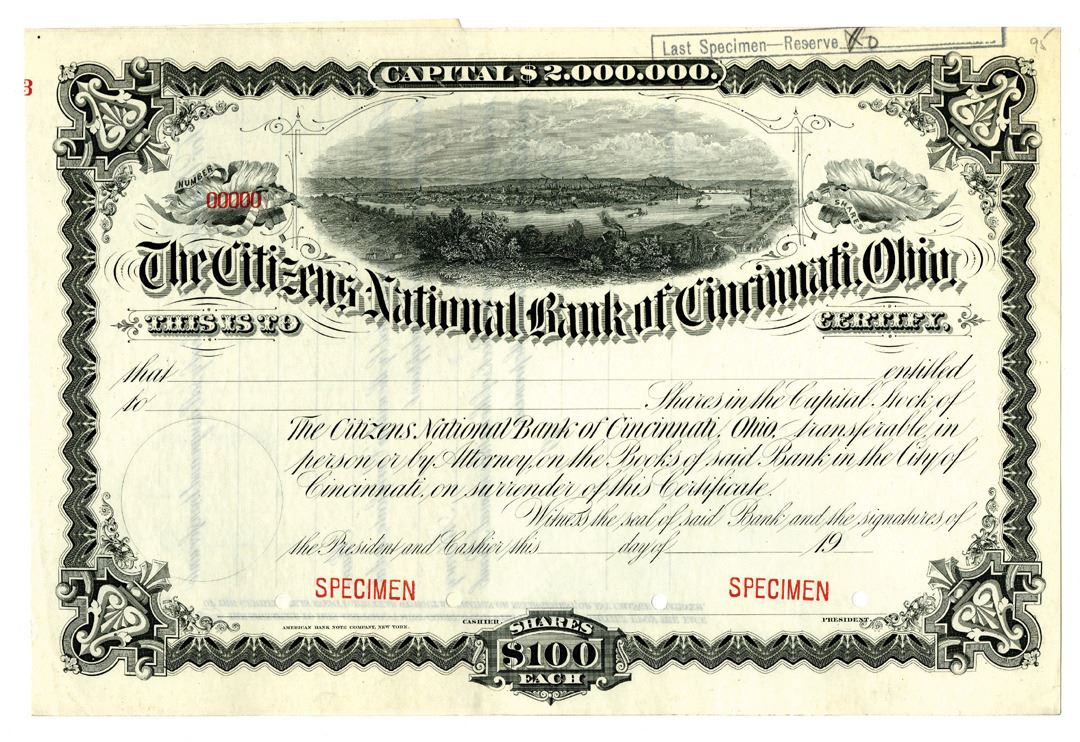 Last Specimen—Reserve
95
CAPITAL $2.000.000.
NUMBER
00000
SHARES
The Citizens National Bank of Cincinnati, Ohio,
THIS IS TO CERTIFY,
that entitled
to Shares in the Capital Stock of
The Citizens National Bank of Cincinnati, Ohio, transferable, in
person or by Attorney, on the Books of said Bank in the City of
Cincinnati, on surrender of this Certificate.
Witness the seal of said Bank and the signatures of
the President and Cashier this day of 19
SPECIMEN SPECIMEN
AMERICAN BANK NOTE COMPANY, NEW YORK. CASHIER. PRESIDENT.
SHARES
$100
EACH